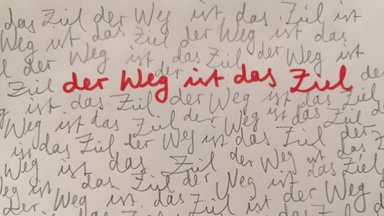 das Ziel der Weg ist das Ziel ist
Weg ist das Ziel der Weg ist das
l der Weg ist das Ziel der Weg ist
Ziel der Weg ist das Ziel
ist das Ziel der Weg ist das
Weg ist das Ziel der Weg ist das Ziel
ist das Ziel der Weg ist das Ziel der
Weg ist das Ziel der Weg ist das
ist das Ziel der Weg ist das Ziel
der Weg ist das Ziel der Weg